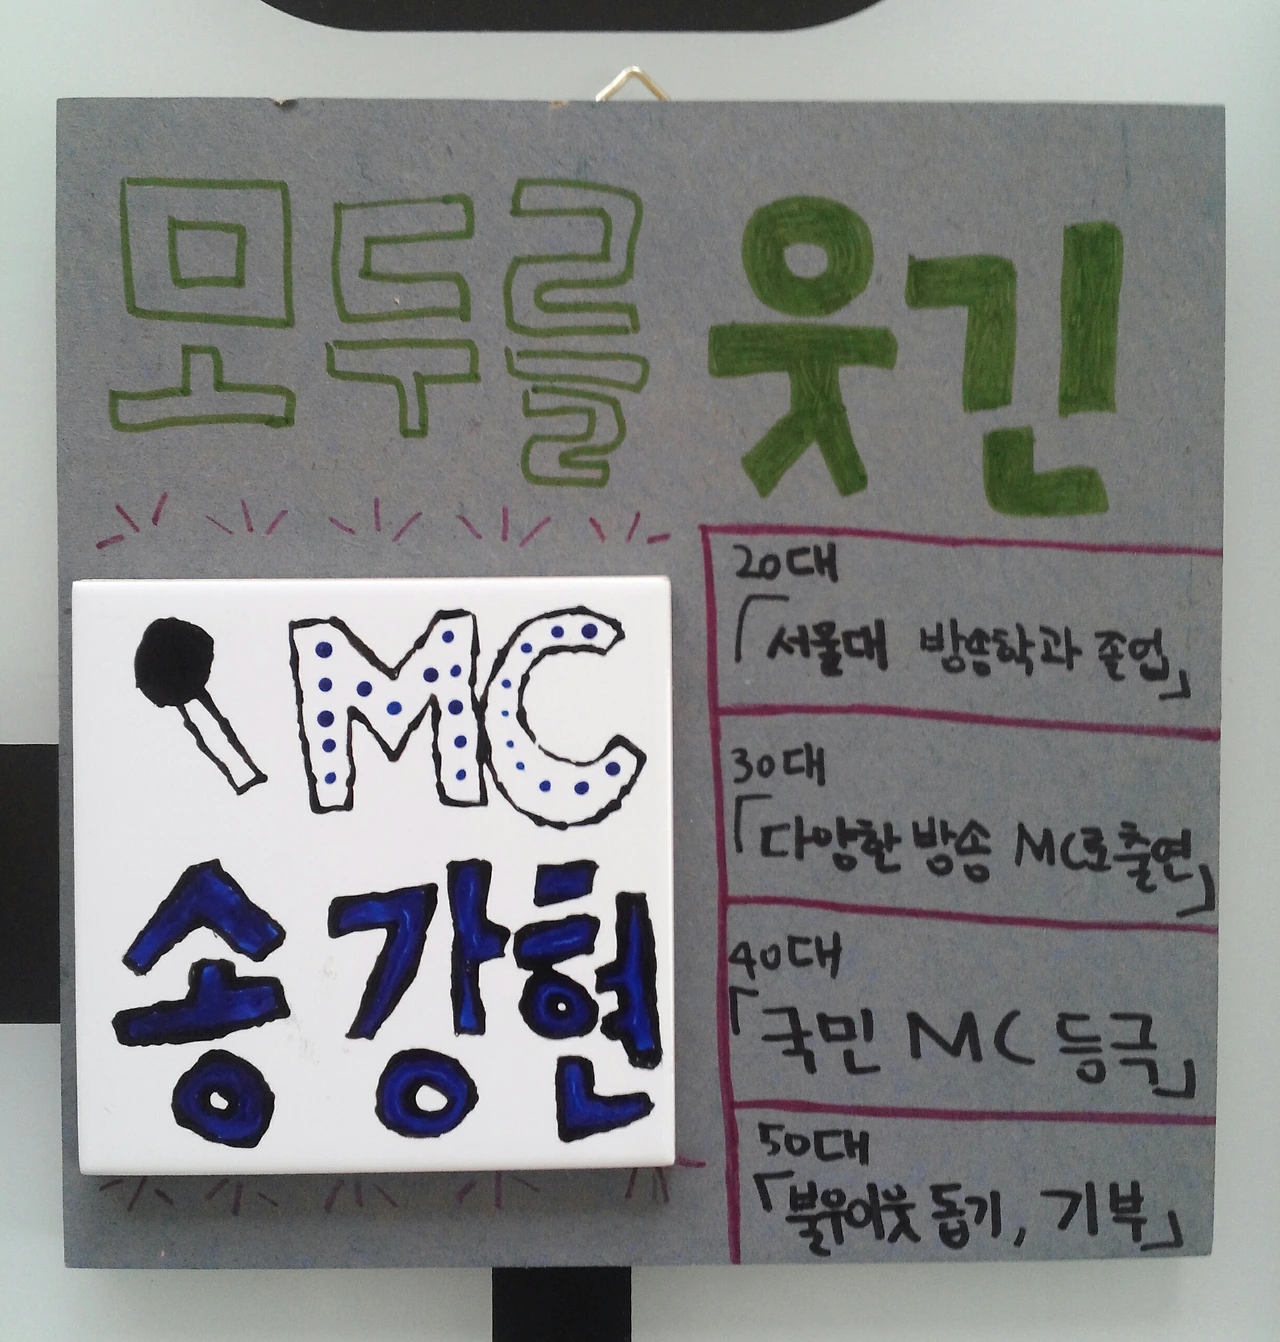 모두를 웃긴
MC
송강현
20대
「서울대 방송학과 졸업」
30대
「다양한 방송 MC로 출연」
40대
「국민 MC 등극」
50대
「불우이웃 돕기, 기부」